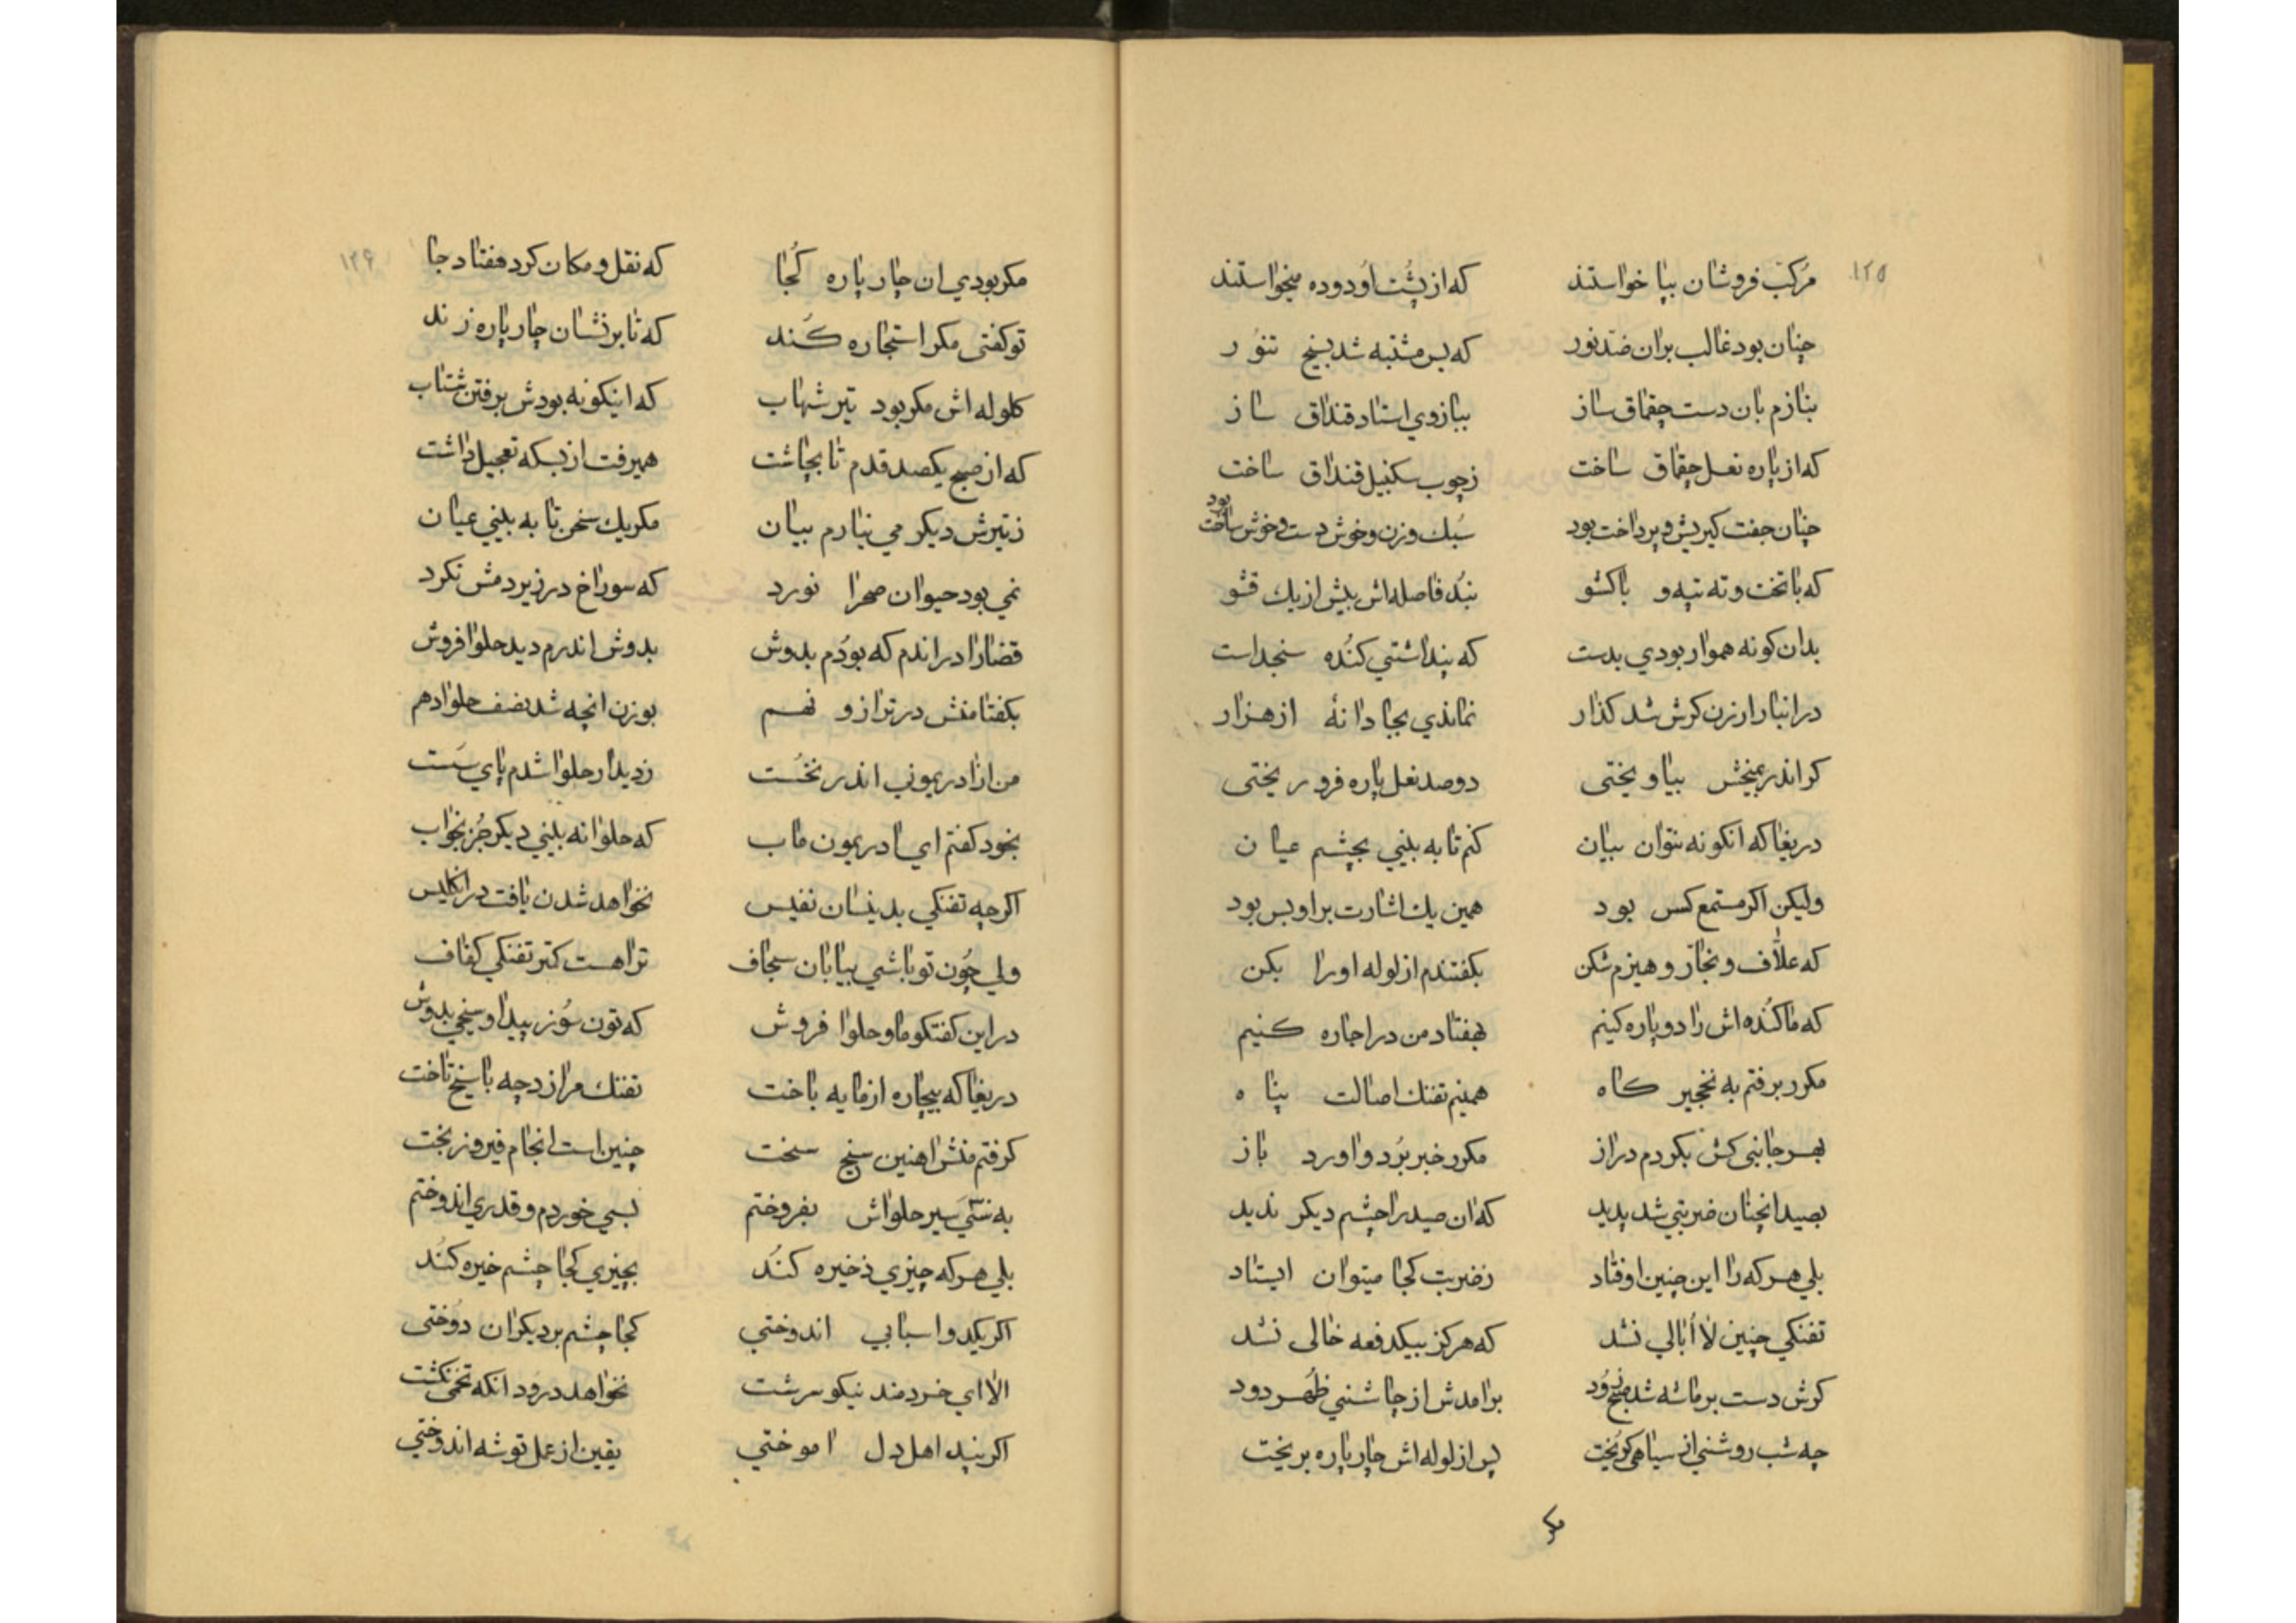 ١٢٥
مرکب فروشان بپا خواستند که از پشت او دوده میخواستند
چنان بود غالب بران ضد نور که بس مشتبه شد بسیخ تنور
بنازم بان دست چقماق ساز ببازوي استاد قنداق ساز
که از پاره نعل چقماق ساخت زچوب سکنبیل قنداق ساخت
چنان جفت کیریش و پرداخت بود سبك وزن و خوش دست و خوش ساخت بود
که با تخت و ته تپه و باکشو نبد فاصله اش بیش از یك قشو
بدان کونه هموار بودي بدست که پنداشتي کنده سنجد است
در انبار ارزن کرش شد کذار نماندي بجا دانهٔ از هزار
کر اندر بمیخش بیاویختی دو صد نعل پاره فرو ریختی
دریغا که انکونه نتوان بیان کنم تا به بیني بچشم عیان
ولیکن اکر مستمع کس بود همین یك اشارت بر او بس بود
که علاف و نجار و هیزم شکن بکفتندم از لوله اورا بکن
که ما کنده اش را دو پاره کنیم بهفتاد من در اجاره کنیم
مکرر برفتم به نخجیر کاه همینم تفنك اصالت پناه
بهر جانبی کش بکردم دراز مکرر خبر برد و اورد باز
بصید انچنان ضربتي شد پدید که ان صید را چشم دیکر ندید
بلي هر که را این چنین اوفتاد زضربت کجا میتوان ایستاد
تفنکي چنین لا ابالي نشد که هرکز بیکدفعه خالی نشد
کرش دست بر ماشه شد صبح زود برامدش از چاشنی ظهر دود
چه شب روشني از سیاهی کریخت پس از لوله اش چار پاره بریخت
مکر
١٢۶
مکر بودي ان چار پاره کجا که نقل و مکان کرد هفتاد جا
تو کفتی مکر استجاره کند که تا بر نشان چار پاره زند
کلوله اش مکر بود تیر شهاب که اینکونه بودش برفتن شتاب
که از صبح یکصد قدم تا بچاشت همیرفت از بسکه تعجیل داشت
زتیرش دیکر مي نیارم بیان مکر یك سخن تا به بیني عیان
نمي بود حیوان صحرا نورد که سوراخ در زیر دمش نکرد
قضارا دراندم که بودم بدوش بدوش اندرم دید حلوا فروش
بکفتا منش در ترازو نهم بوزن انچه شد نصف حلوا دهم
من ازادریموني اندر نخست زدیدار حلوا شدم پاي سست
بخود کفتم اي ادریمون ماب که حلوا نه بیني دیکر جز بخواب
اکرچه تفنکي بدینسان نفیس نخواهد شدن یافت در انکلیس
ولي چون تو باشي بیابان سجاف تراهست کتر تفنکي کفاف
در این کفتکو ما و حلوا فروش که تون سوز پیدا و سیخي بدوش
دریغا که بیچاره از مایه باخت تفنك مرا ازدچه با سیخ تاخت
کرفتم منش اهنین سنج سخت چنین است انجام فیروز بخت
به نسّي سیر حلواش بفروختم بسي خوردم و قدري اندوختم
بلي هر که چیزي ذخیره کند بچیزي کجا چشم خیره کند
اکر یکدو اسبابي اندوختي کجا چشم بر دیکران دوختی
الا اي خردمند نیکو سرشت نخواهد درود انکه تخمی نکشت
اکر پند اهل دل اموختي یقین از عمل توشه اندوختي